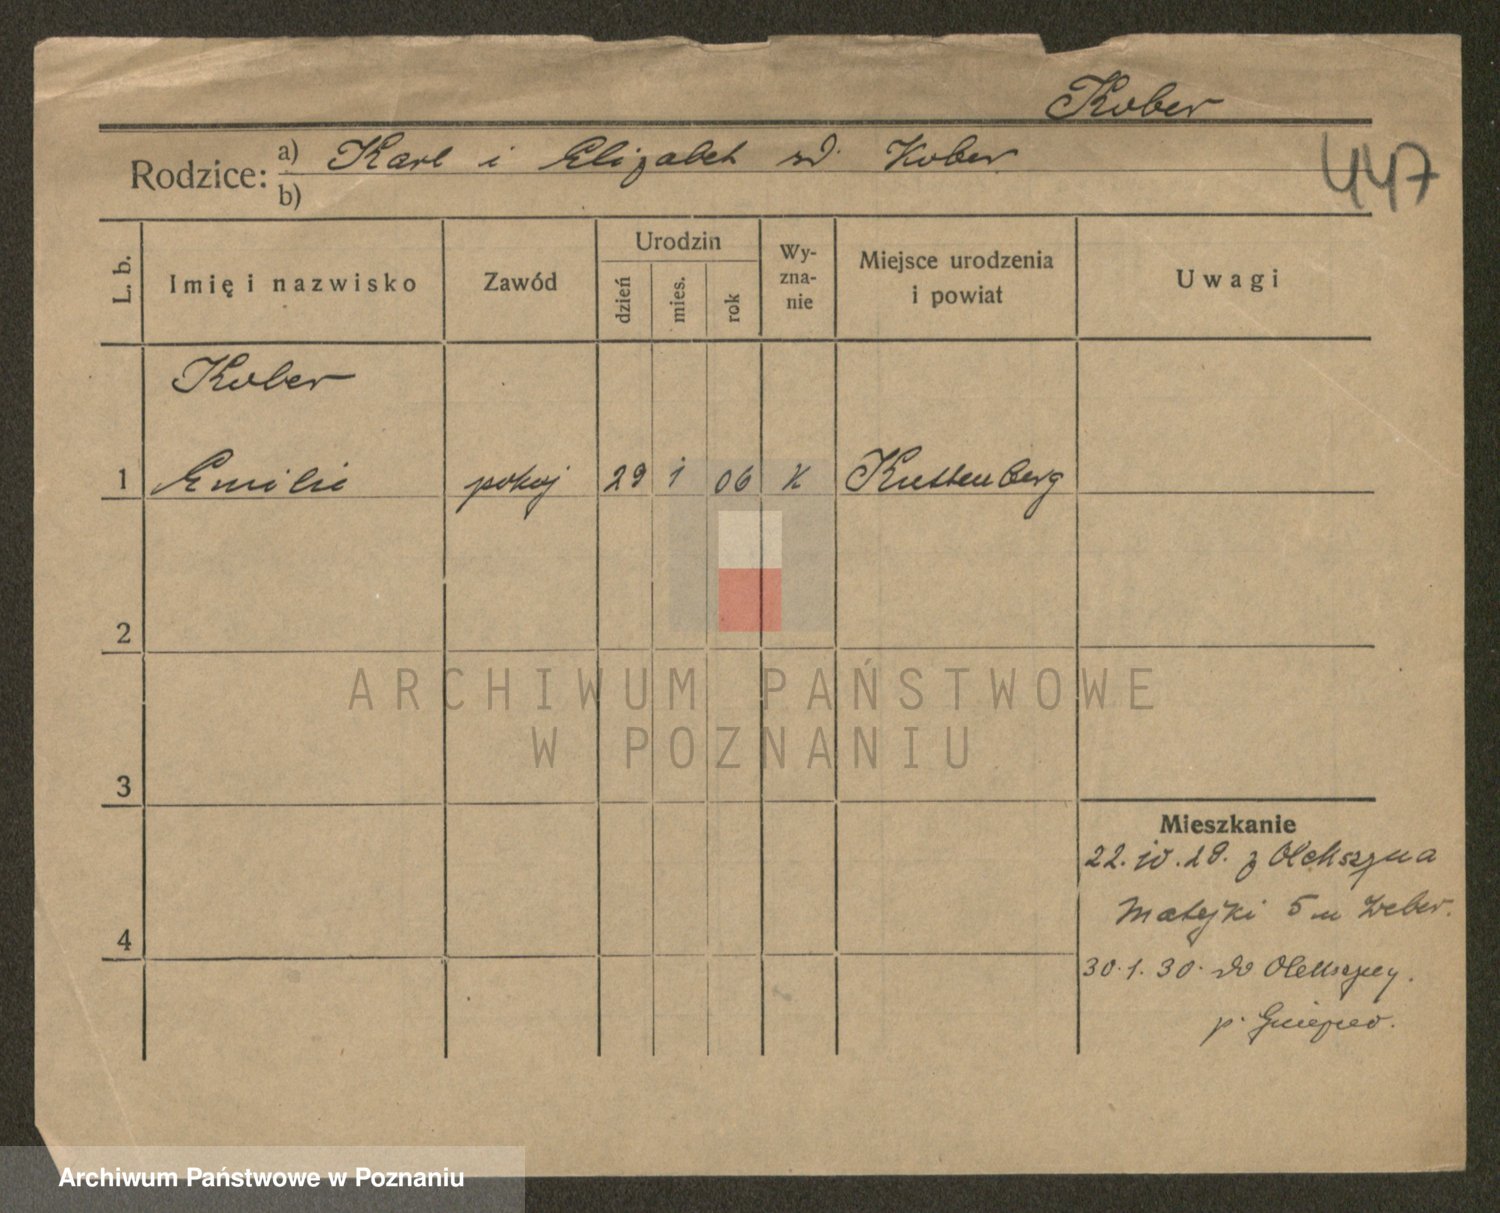 Kober
Rodzice: a) Karl i Elizabet zd. Kober
b)
447
L. b.
Imię i nazwisko
Zawód
Urodzin
dzień
mies.
rok
Wy-
zna-
nie
Miejsce urodzenia
i powiat
Uwagi
Kober
1 Emilie pokoj 29 1 06 K Kuttenberg
2
ARCHIWUM PAŃSTWOWE
W POZNANIU
3
Mieszkanie
22. IV. 29. z Olekszyna
Matejki 5 u Weber.
4
30.1.30. do Olekszyn.
p. Gniezno.
Archiwum Państwowe w Poznaniu